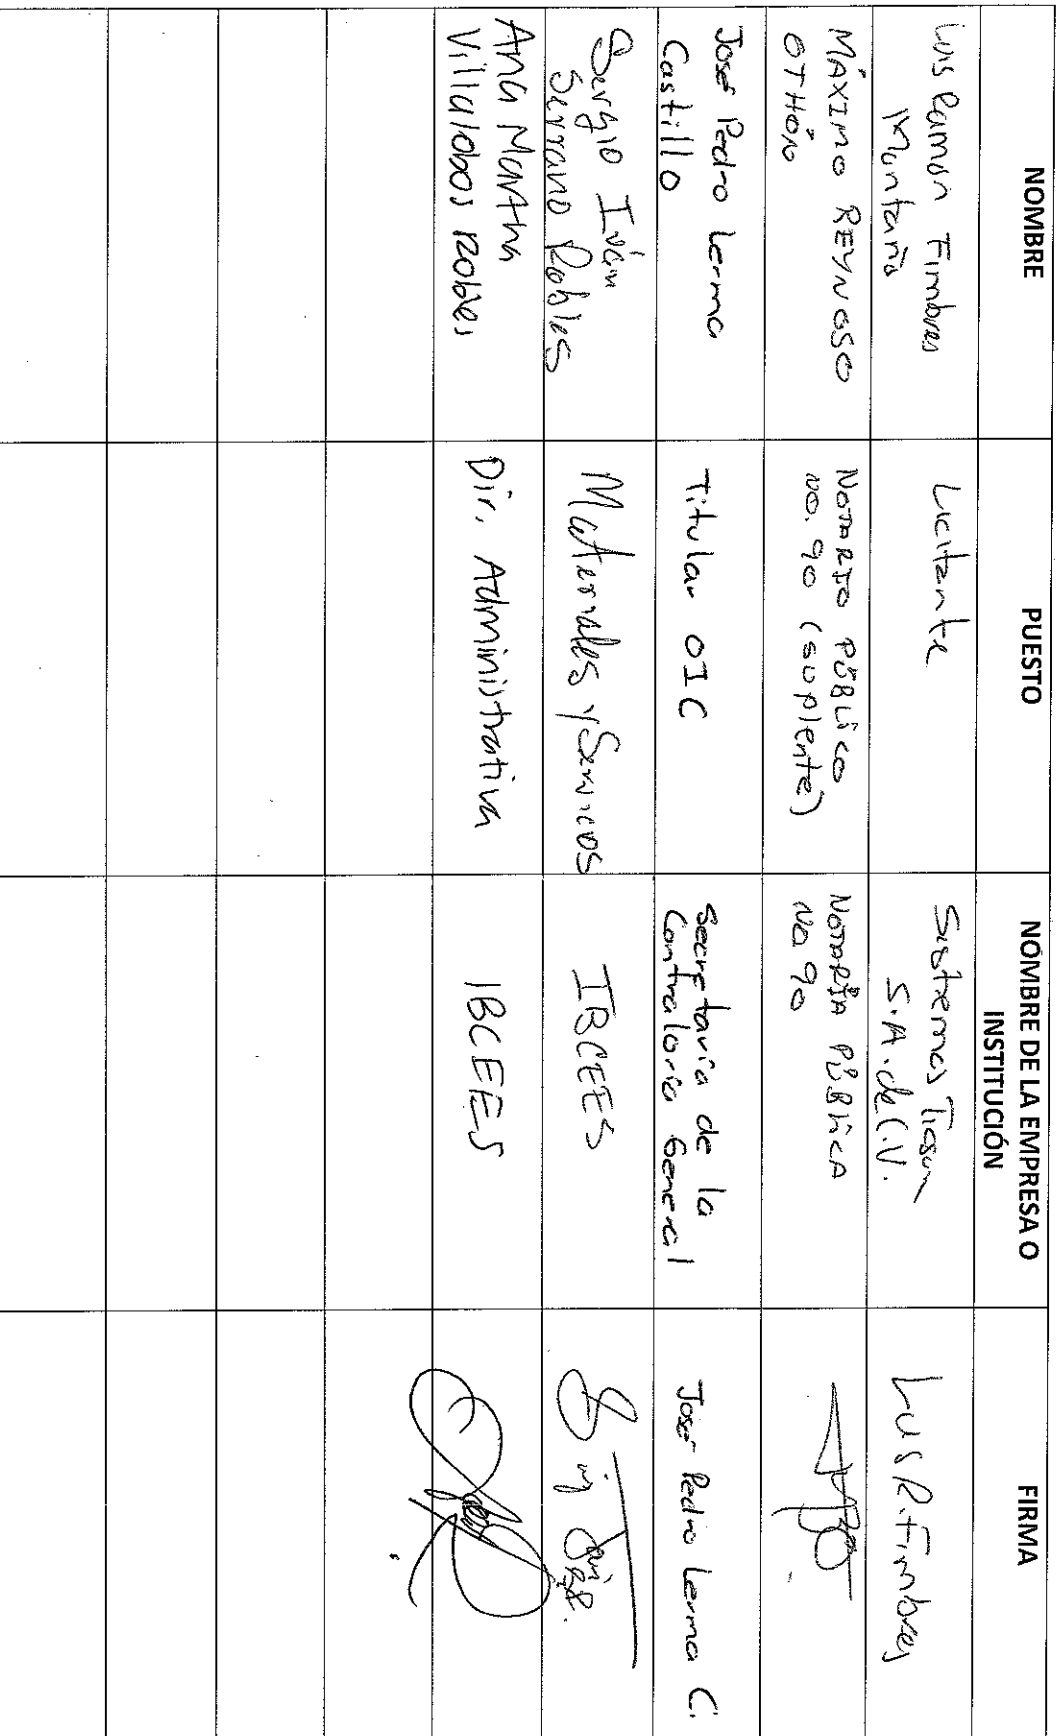 NOMBRE
PUESTO
NOMBRE DE LA EMPRESA O
INSTITUCIÓN
FIRMA
Luis Ramón Fimbres
Montaño
Licitante
Sistemas
S.A. de C.V.
Luis R. Fimbres
MÁXIMO REYNOSO
OTHÓN
NOTARIO PÚBLICO
NO. 90 (suplente)
NOTARÍA PÚBLICA
NO 90
José Pedro Lerma
Castillo
Titular OIC
Secretaría de la
Contraloría General
José Pedro Lerma C.
Sergio Iván
Serrano Robles
Materiales y Servicios
IBCEES
Ana Martha
Villalobos Robles
Dir. Administrativa
IBCEES